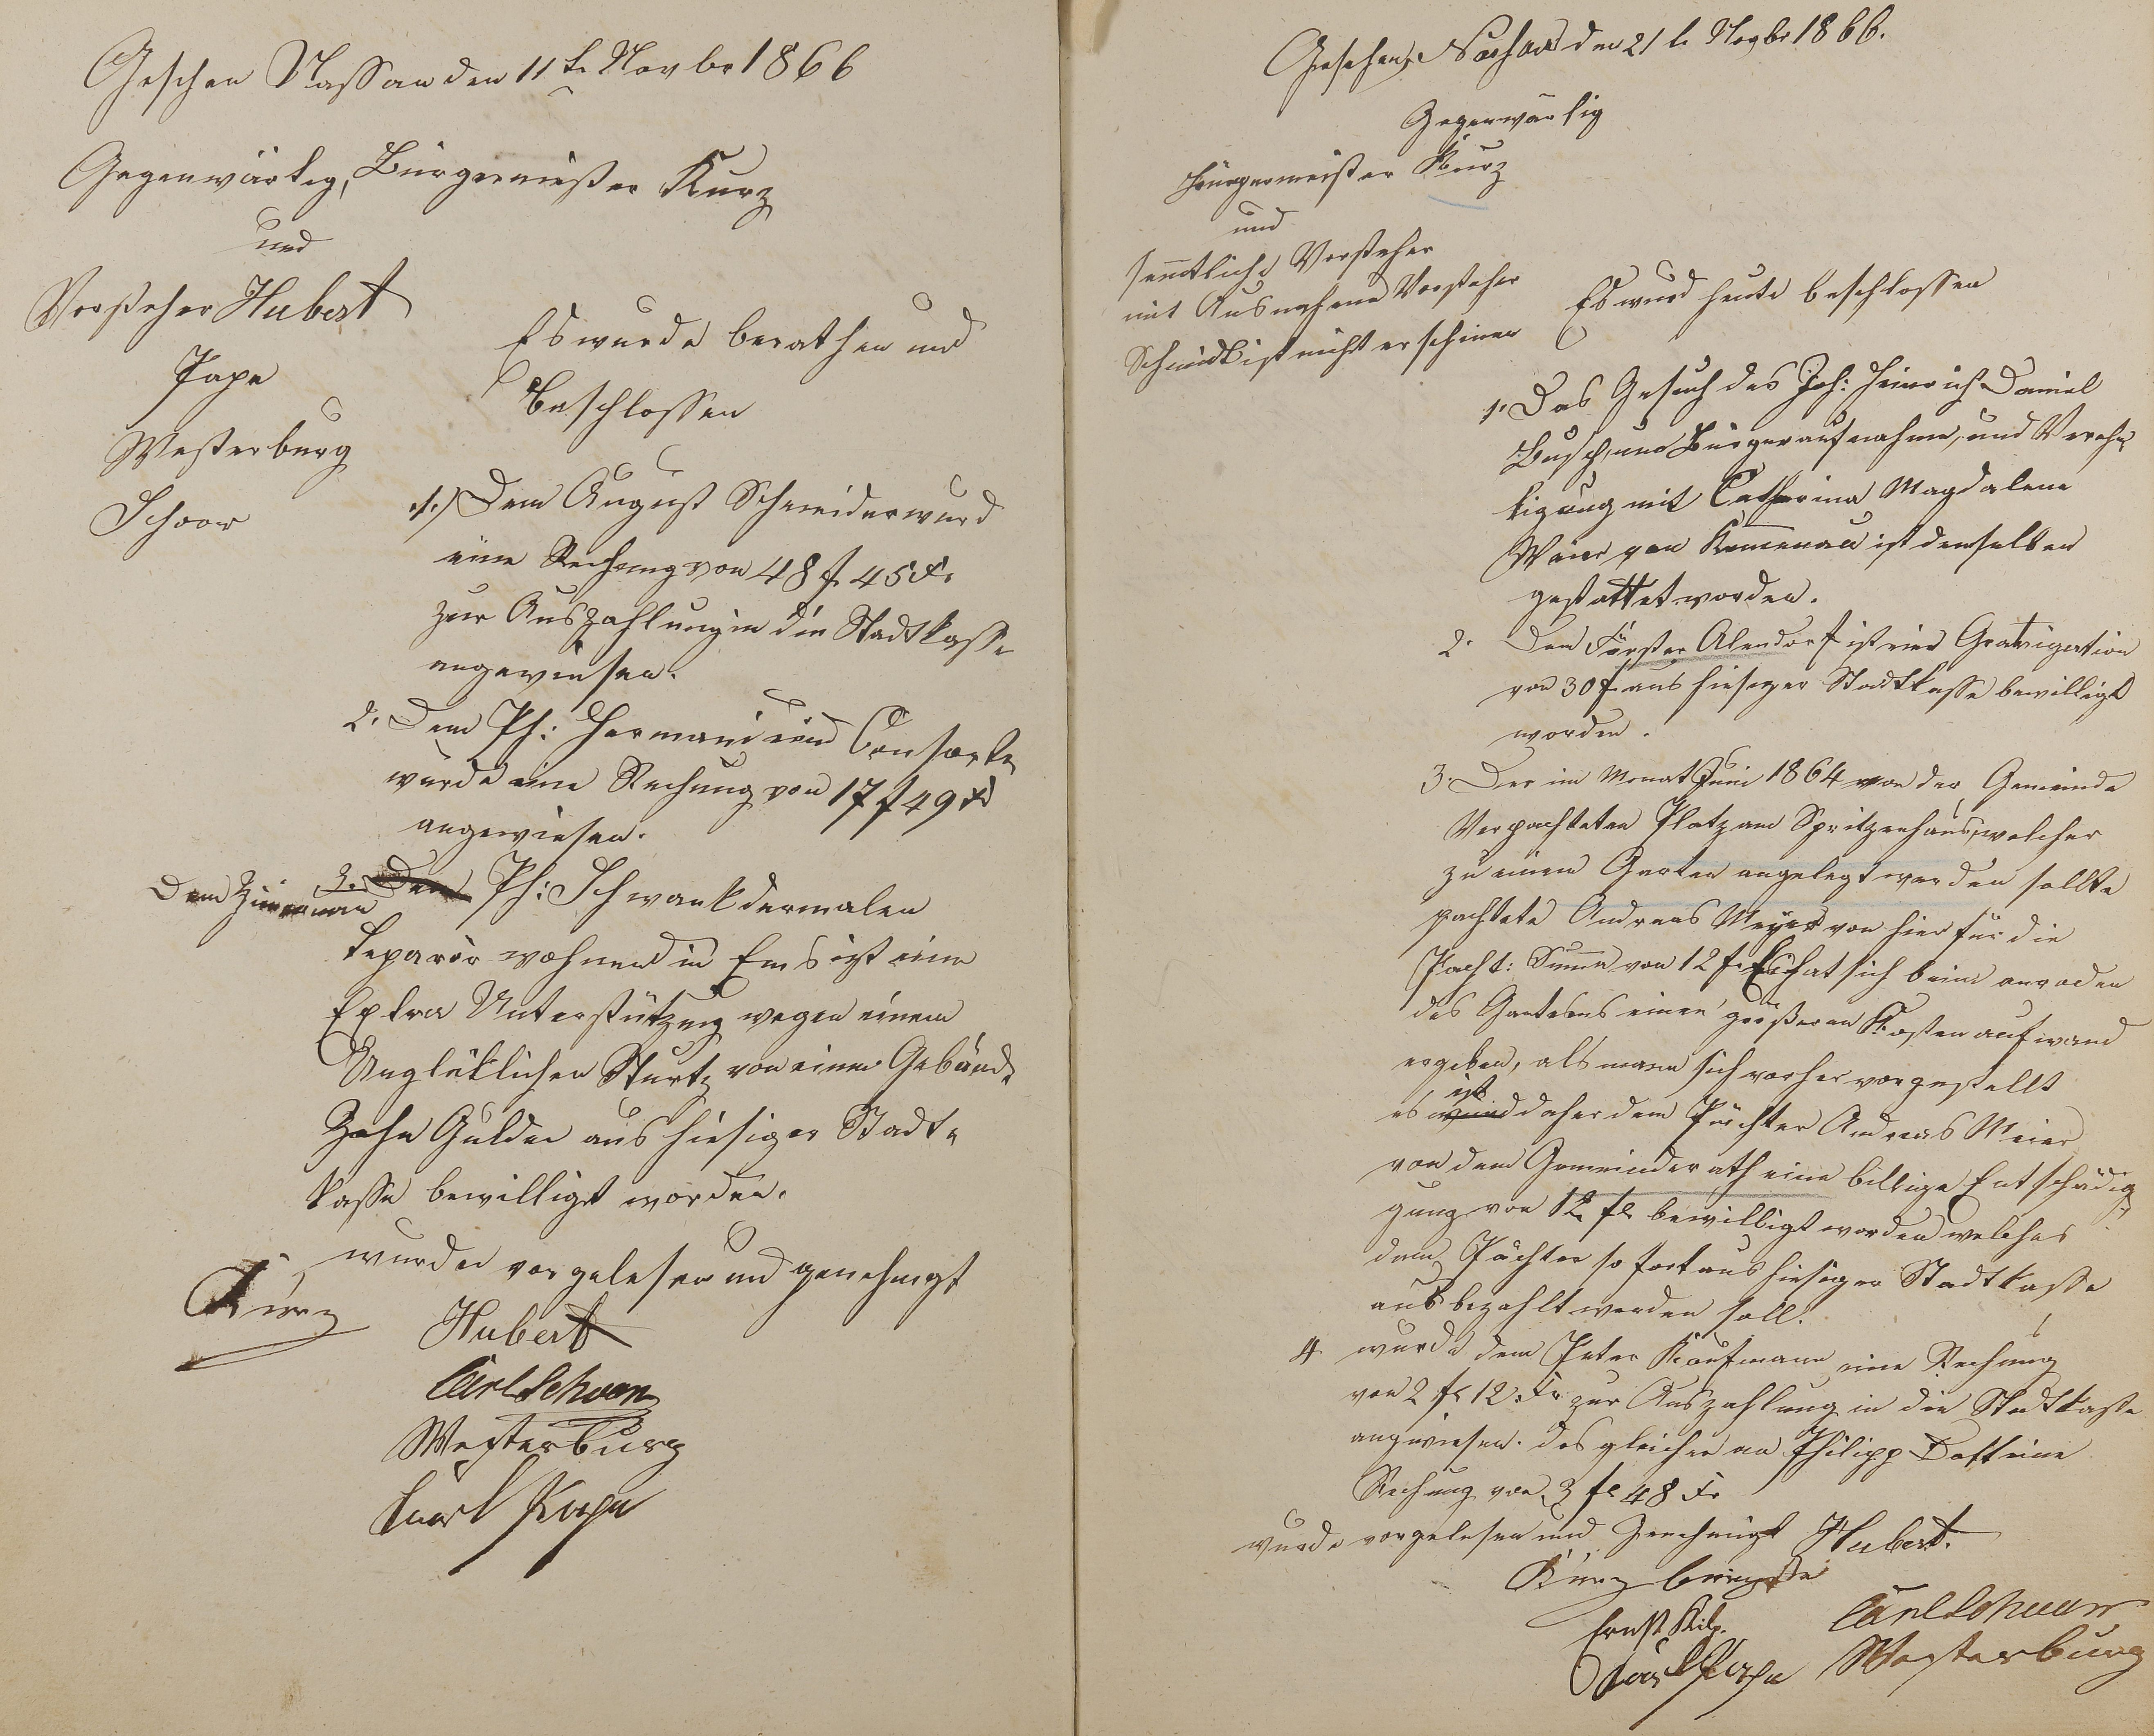 Geschehen Nassau den 11te Novbr 1866
Gegenwärtig, Bürgermeister Kurz
und
Vorsteher Hubert
Pape
Westerburg
Schoor
Es wurde berathen und
Beschlossen
1.) Dem August Schneider wurd
eine Rechnung von 48 f. 45 Kr
zur Auszahlung in die Stadtkasse
angewiesen.
2. Dem Ph: Hermani und Consorten
wurde eine Rechnung von 17 f 49 Kr
angewiesen.
Dem Zimmerman 3. Dem Ph: Schwank dermalen
wohnend in Ems ist eine
Extra Unterstützung wegen einem
Unglüklichen Sturtz von einem Gebäude
Zehn Gulden aus hiesiger Stadt-
kasse bewilligt worden.
wurde vorgelesen und genehmigt
Kurz
Hubert
Carl Schoor
Westerburg
Carl Pape
Geschehen Nassau den 21te Novbr 1866.
Gegenwärtig
Bürgermeister Kurz
und
semtliche Vorsteher
mit Ausnahme Vorsteher
Schmidt ist nicht erschinen
Es wurd heute beschlossen
1. Das Gesuch des Joh: Heinrich Daniel
Busch, um Bürgeraufnahme, und Verehe-
ligung mit Catharina Magdalena
von Kemenau ist demselben
gestattet worden.
2. Dem Förster Alendorf ist eine Gratification
von 30 f aus hiesiger Stadtkasse bewilligt
worden.
3. Der im Monat Juni 1864 von der Gemeinde
Verpachteten Platz am Spritzenhaus, welcher
zu einem Garten angelegt werden sollte
pachtete Andreas Meyer von hier für die
Pacht: Summe von 12 f. Es hat sich beim anroden
des Gartens einen größeren Kostenaufwand
ergeben, als mann sich vorher vorgestellt
ist
es wurd daher dem Pächter Andreas Meier
von dem Gemeinderath eine billige Entschädig-
gung von 12 fl bewilligt worden welches
dem Pächter so fort aus hiesiger Stadtkasse
ausbezahlt werden soll.
4 wurde dem Peter Kaufmann eine Rechnung
von 2 fl 12 Kr zur Auszahlung in die Stadtkasse
angewiesen. desgleichen an Philipp eine
Rechnung von 3 fl 48 Kr
wurde vorgelesen und Genehmigt Hubert.
Kurz
Ernst Carl Schoor
Carl Pape Westerburg